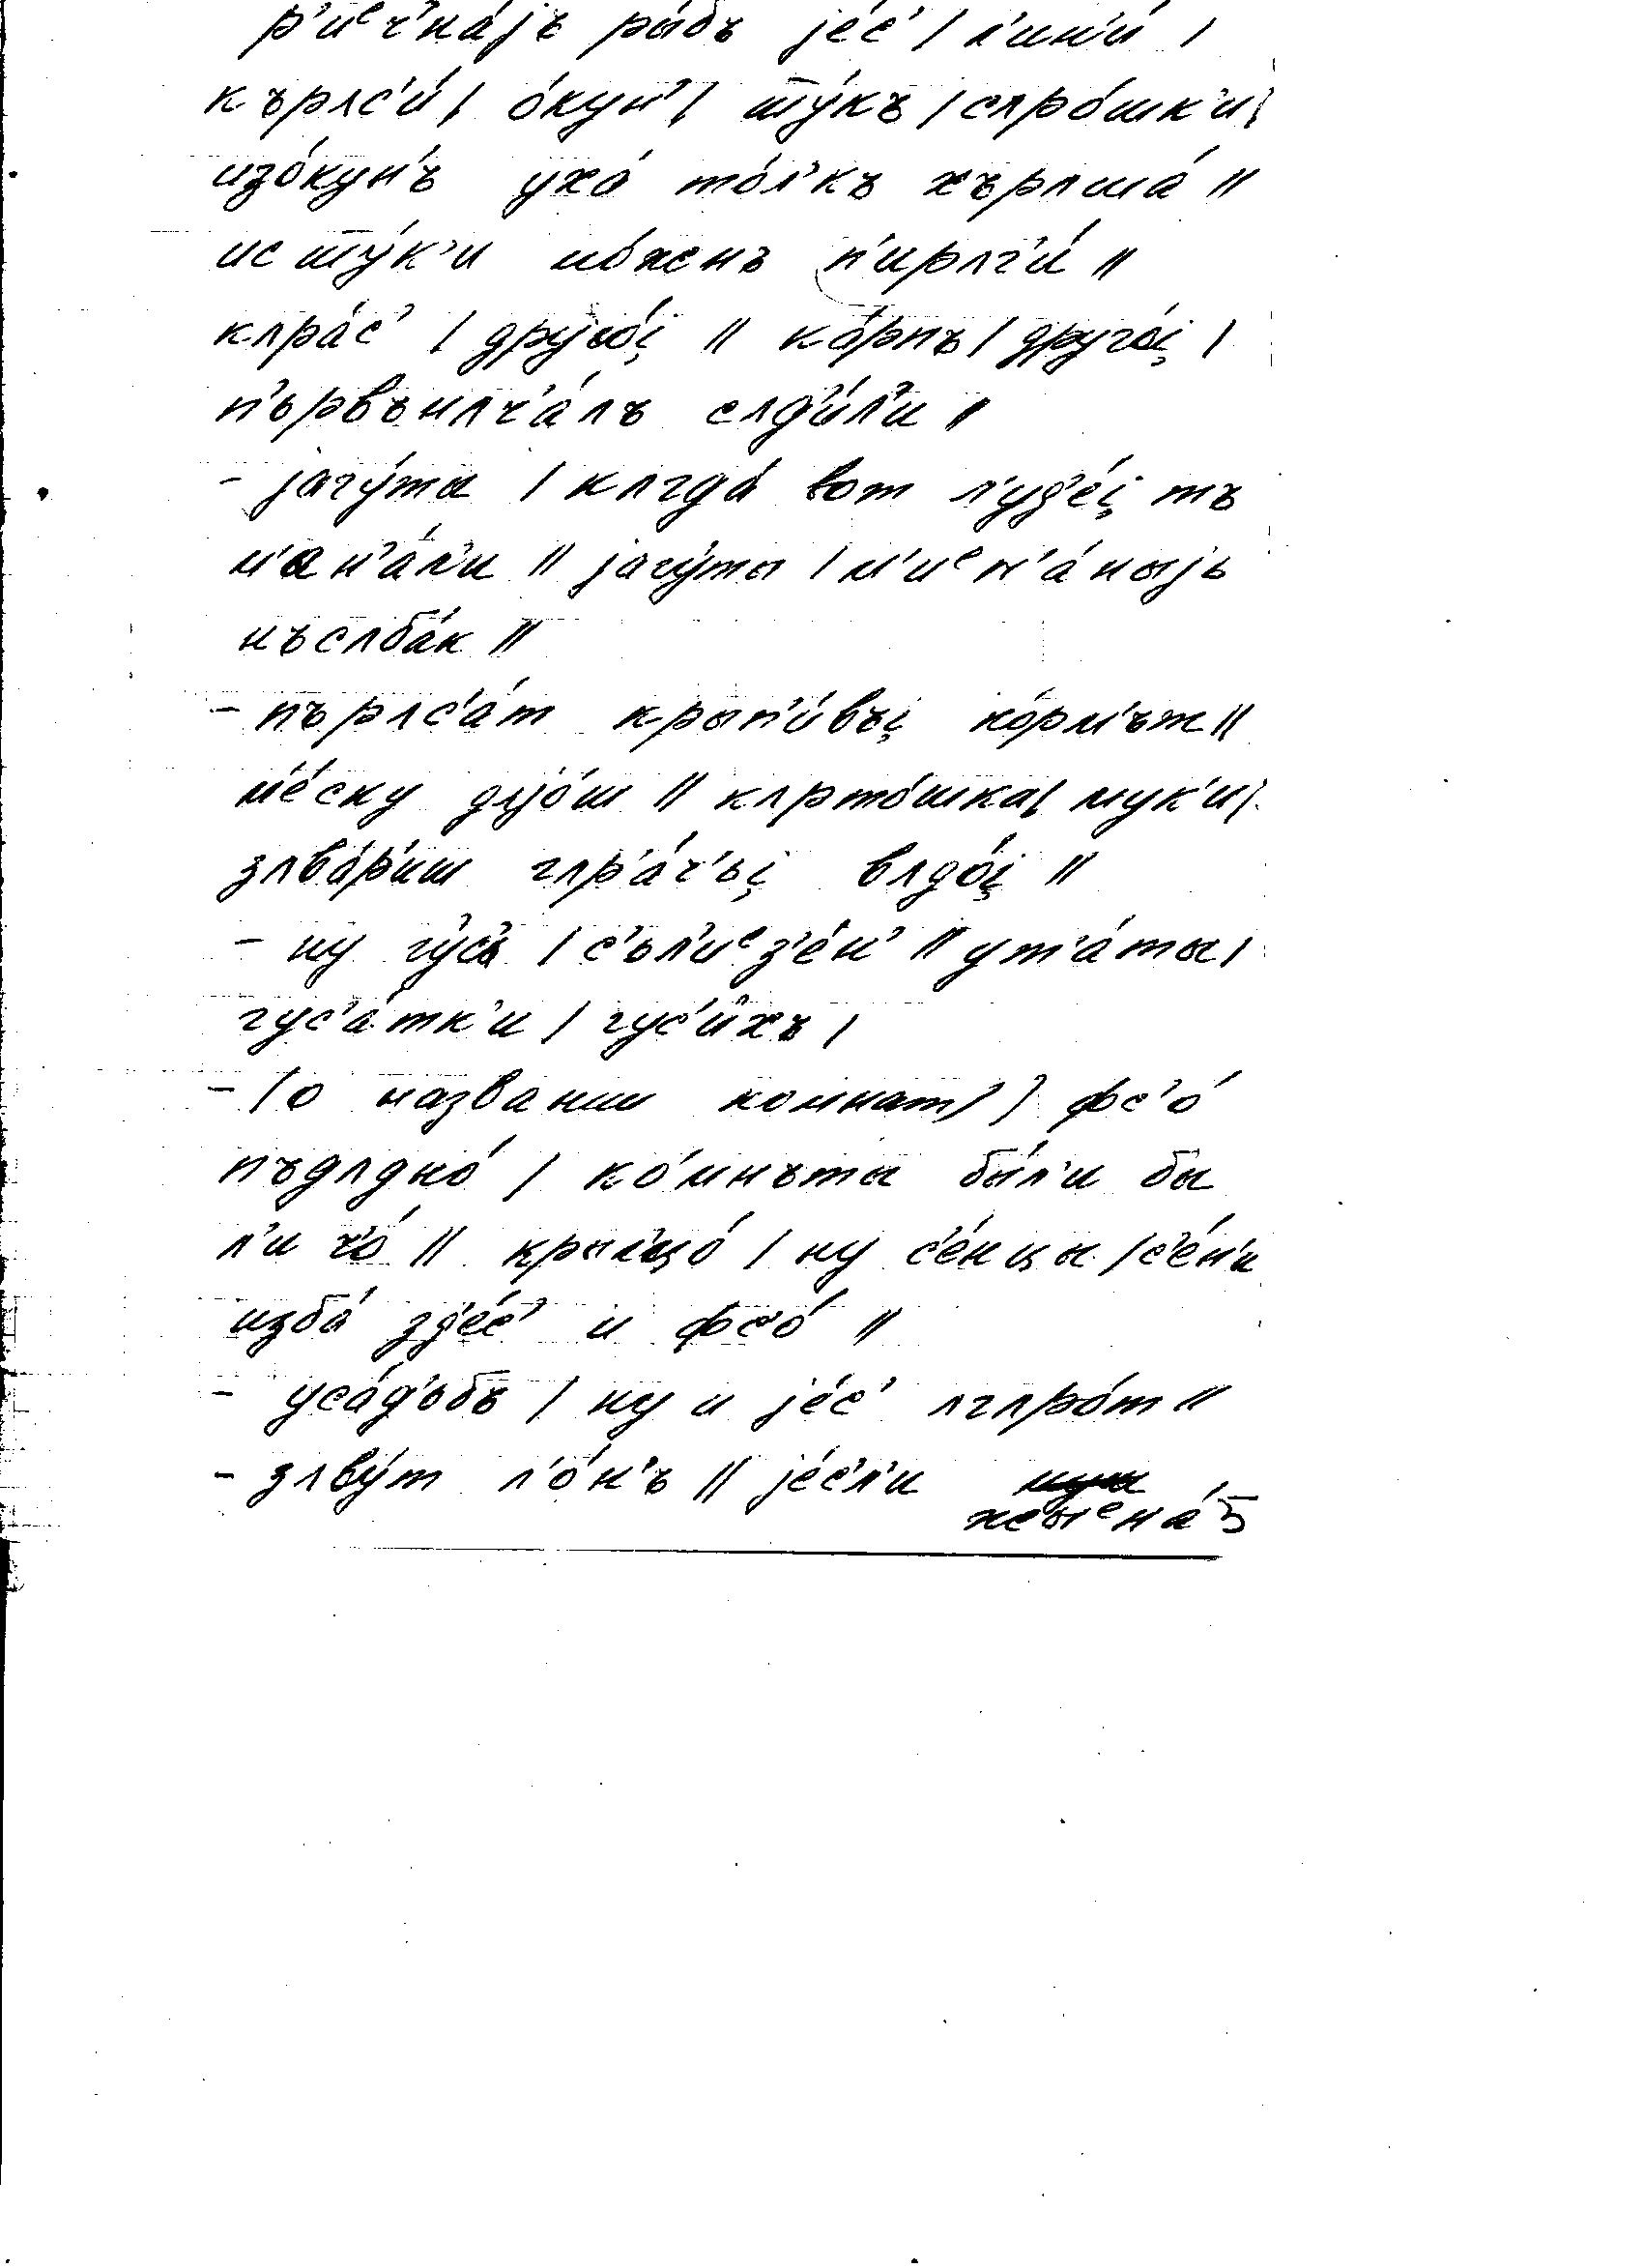 р'иᵉч'на́јъ ры́бъ је́с' / л'ин'и́ /
кърʌс'и́ / о́кун' / ш̅у́къ / сʌро́шк'и /
изо́кун'ъ уха́ то́л'къ хърʌша́ //
ис ш̅у́к'и мо́жнъ п'ирʌг'и́ //
кʌра́с' / друго́i̯ // ка́рпъ / друго́i̯ /
п'ървънʌч'а́лъ сʌд'и́л'и //
- јагу́ты / кʌгда́ вот л'уд'е́i̯ тъ
м'ан'а́л'и // јагу́ты / м'иᵉн'а́ныјь
нъсʌба́к //
- пърʌс'а́т крып'и́въi̯ ко́рм'ът //
м'е́ску дајо́ш // кʌрто́шка / мук'и /
зʌва́р'иш гʌр'а́ч'ьi̯ вʌдо́i̯ //
- ну гу́с' / с'ьл'иᵉз'е́н' // ут'а́ты /
гус'а́тк'и / гус'и́хъ /
- (о названии комнат) фс'о́
пъдʌдно́ / ко́мнъты бы́л'и бы
л'и ч'о́ // крыл'цо́ / ну с'е́нцы / с'е́н'и
изба́ зд'е́с' и фс'о́ //
- уса́д'ьбъ / ну и је́с' ʌгʌро́т //
- зʌву́т л'о́н'ъ // је́с'л'и
жыᵉна́ 5